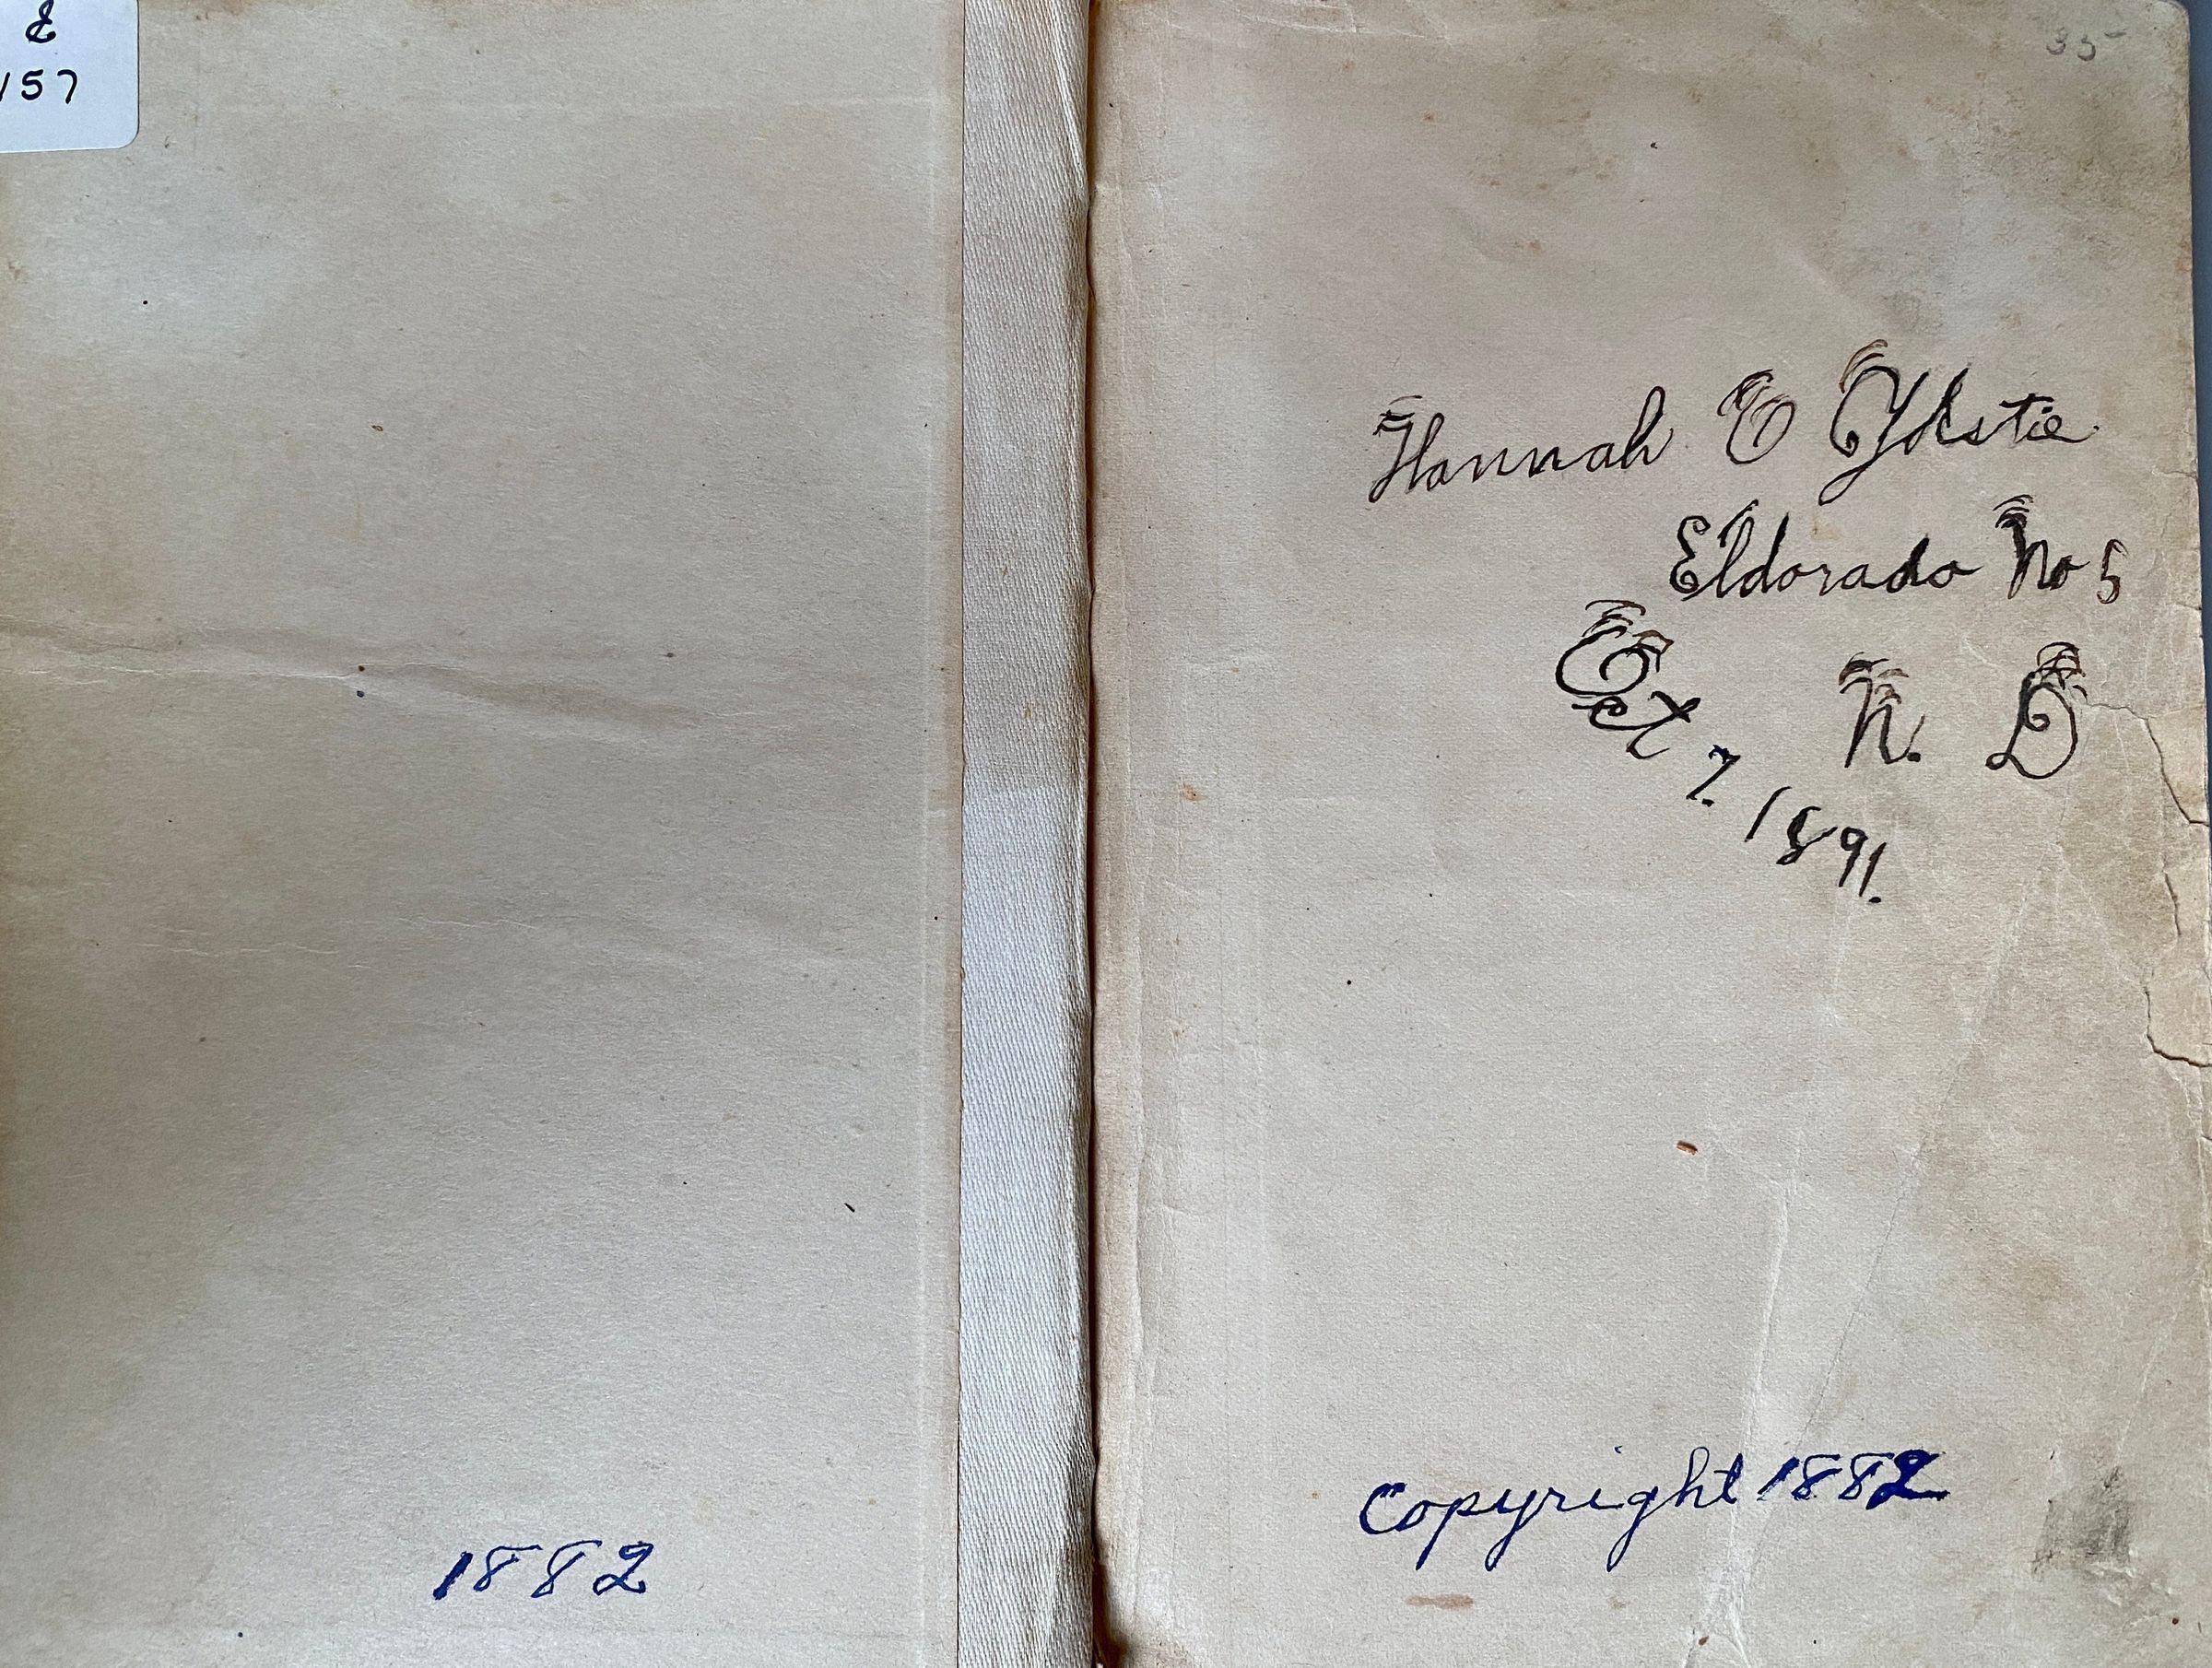 &
157
1882
35-
Hannah O Ykstie
Eldorado No 5
N. D
Oct 7. 1891.
Copyright 1882